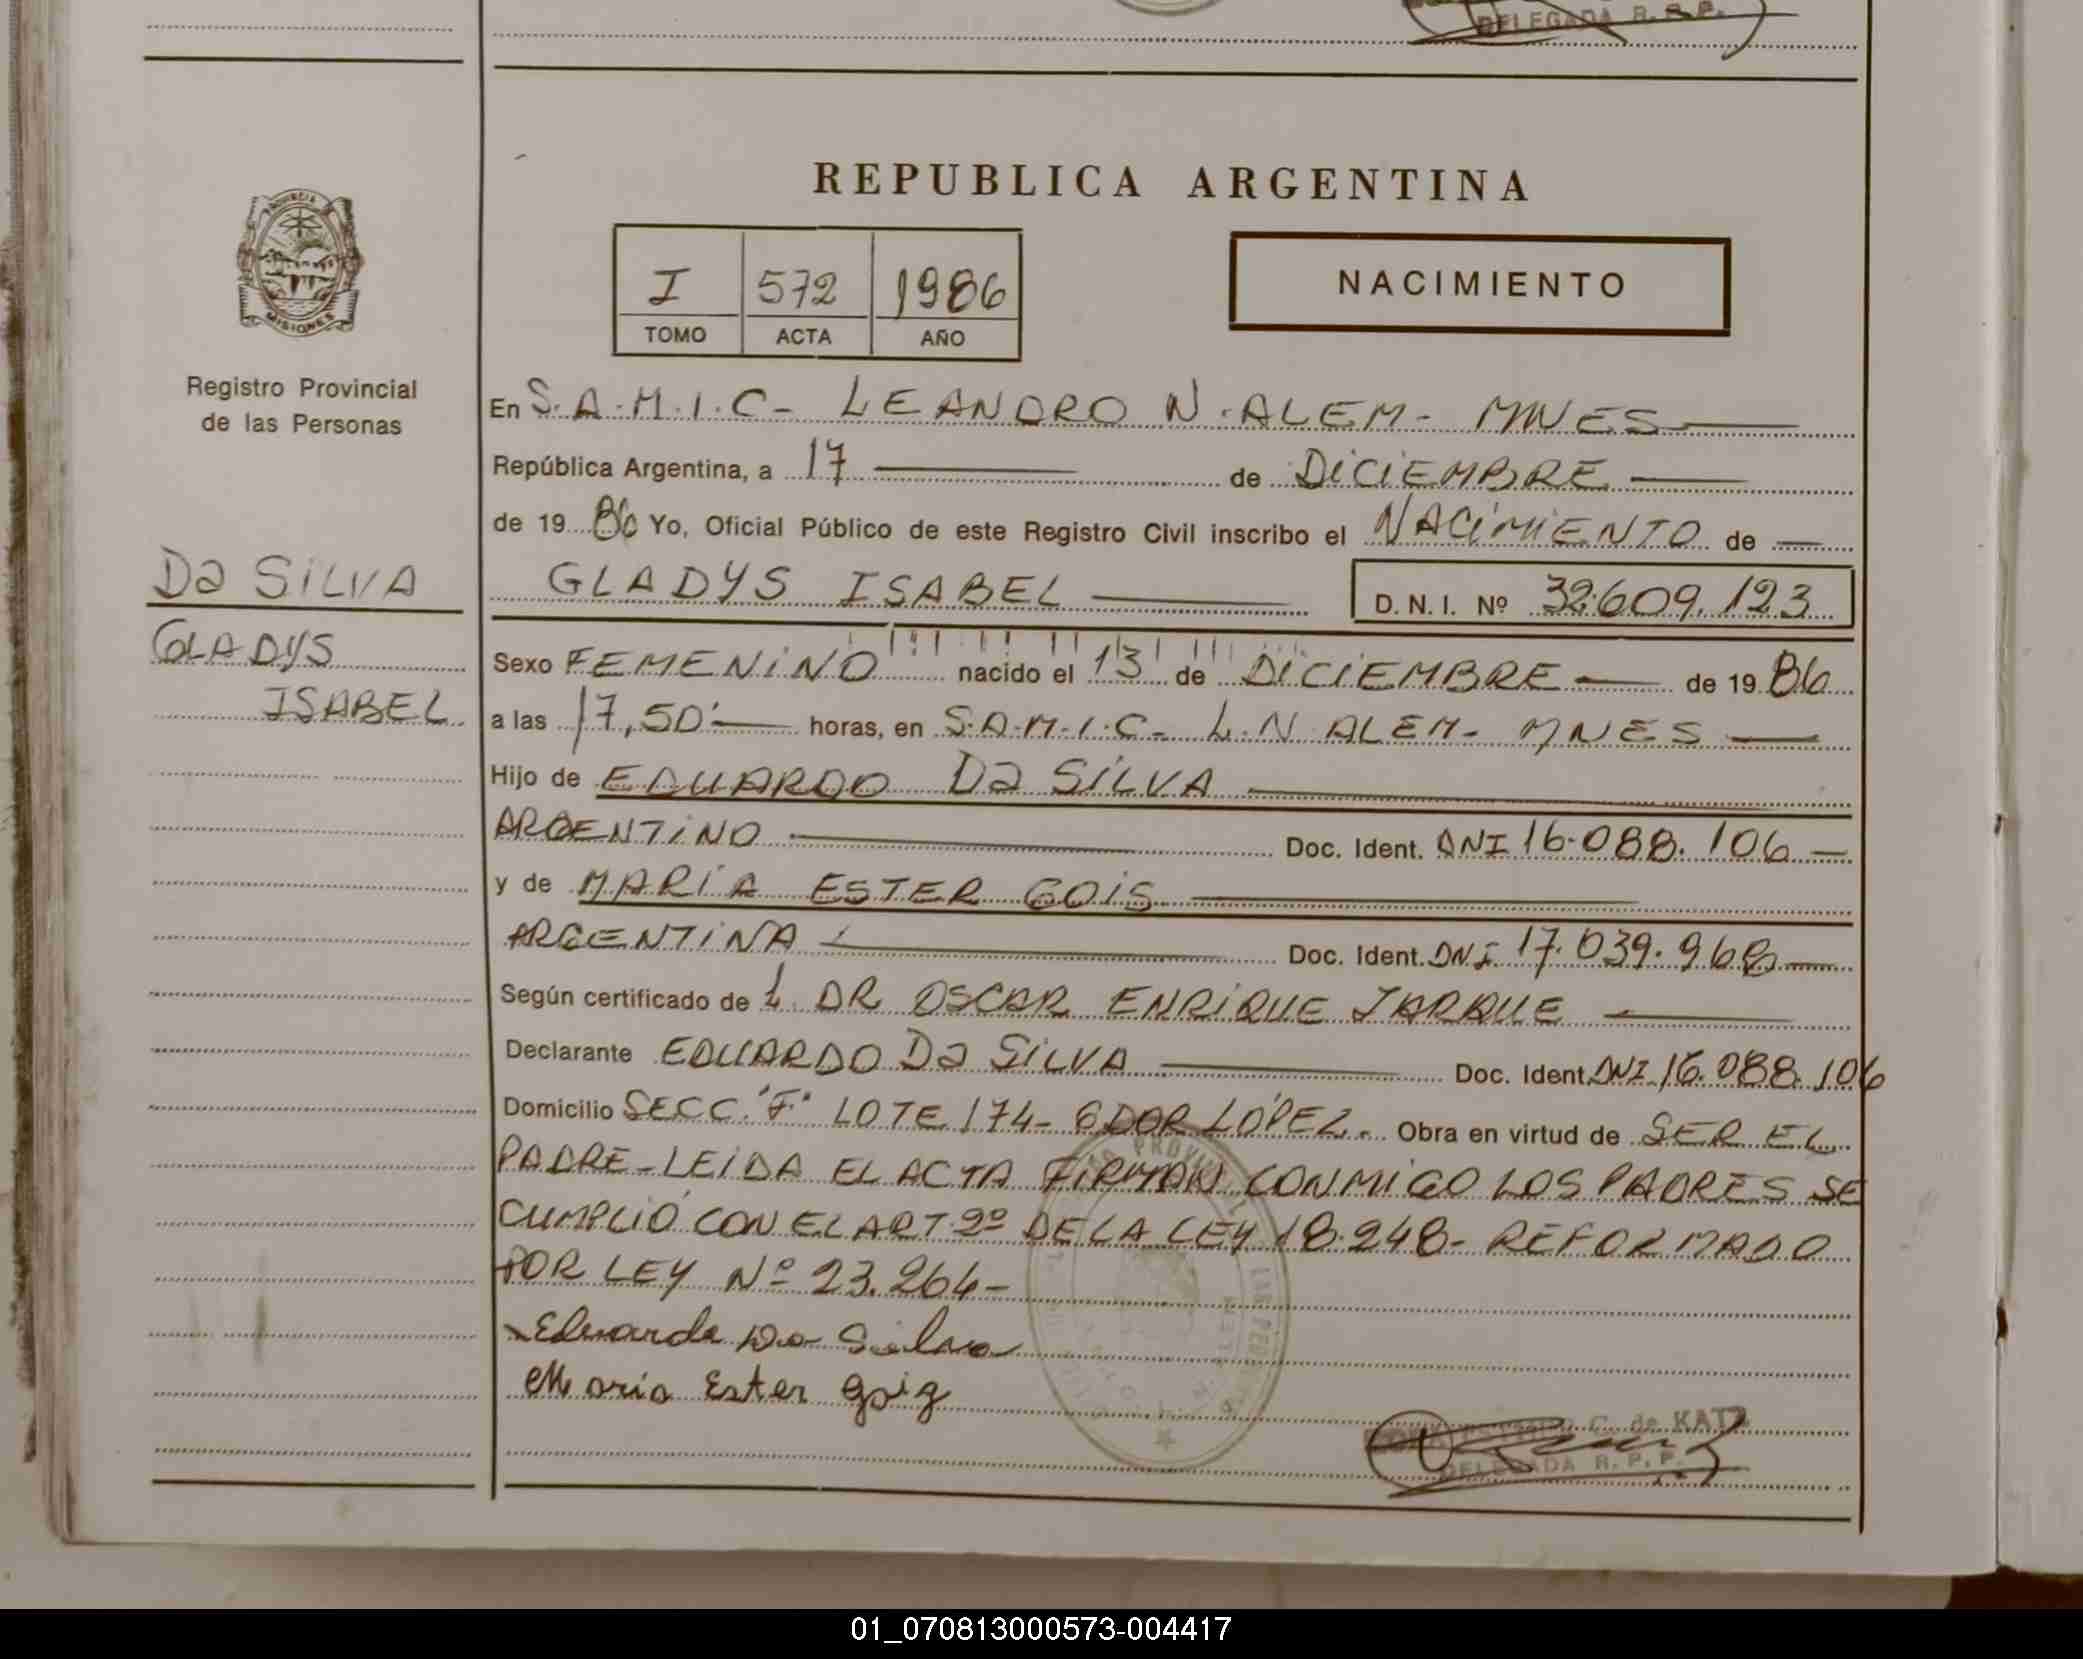 DELEGADA R.P.P.
REPUBLICA ARGENTINA
I 572 1986
TOMO ACTA AÑO
NACIMIENTO
MISIONES
Registro Provincial
de las Personas
Da SILVA
GLADYS
ISABEL
En S.A.M.I.C- LEANDRO N. ALEM- MNES
República Argentina, a 17 de DICIEMBRE
de 19 86 Yo, Oficial Público de este Registro Civil inscribo el NACIMIENTO de
GLADYS ISABEL D.N.I. Nº 32.609.123
Sexo FEMENINO nacido el 13 de DICIEMBRE de 19 86
a las 17,50' horas, en S.A.M.I.C- L.N. ALEM- MNES
Hijo de EDUARDO Da SILVA
ARGENTINO Doc. Ident. DNI 16.088.106
y de MARIA ESTER GOIS
ARGENTINA Doc. Ident. DNI 17.039.968
Según certificado de L DR OSCAR ENRIQUE JARQUE
Declarante EDUARDO Da SILVA Doc. Ident. DNI 16.088.106
Domicilio SECC."F" LOTE 174- GDOR LÓPEZ. Obra en virtud de SER EL
PADRE-LEIDA EL ACTA FIRMAN CONMIGO LOS PADRES SE
CUMPLIÓ CON EL ART 2º DE LA LEY 18.248- REFORMADO
POR LEY Nº 23.264-
Eduardo Da Silva
Maria Ester Goig
C. de KATZ
DELEGADA R.P.P.
01_070813000573-004417